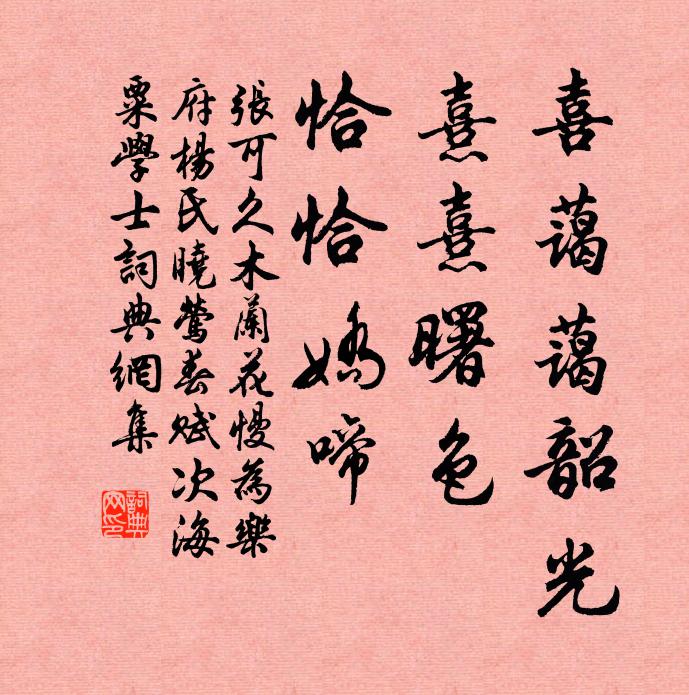 喜藹藹韶光
熹熹曙色
恰恰嬌啼
張可久木蘭花慢為樂
府楊氏曉鶯春賦次海
粟學士詞典網集
詞典網印